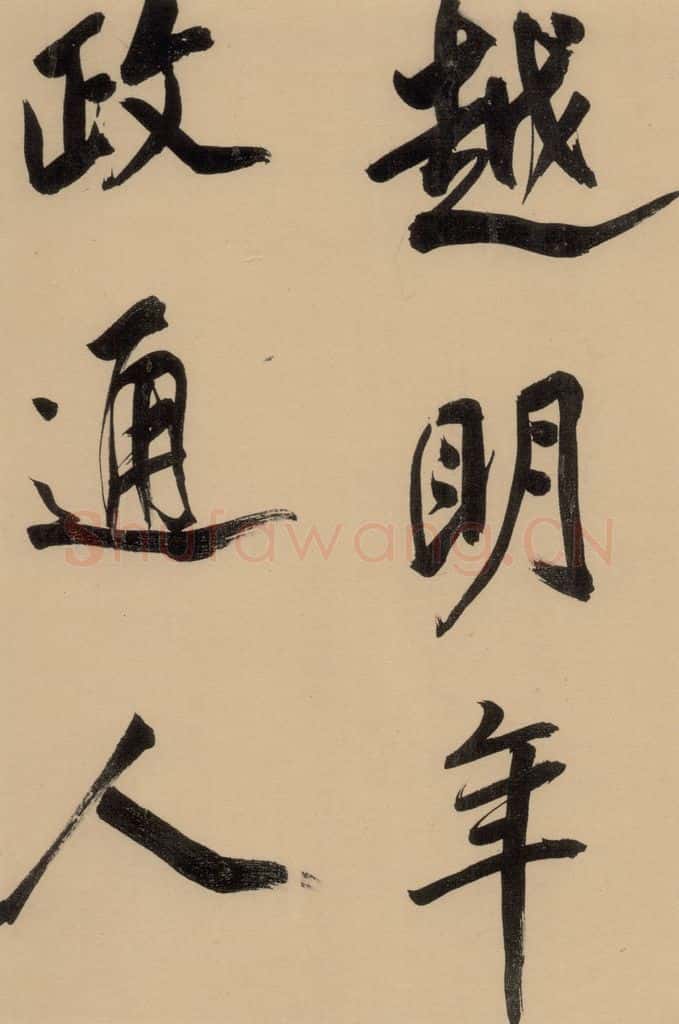 越明年
政通人
Shufawang.CN